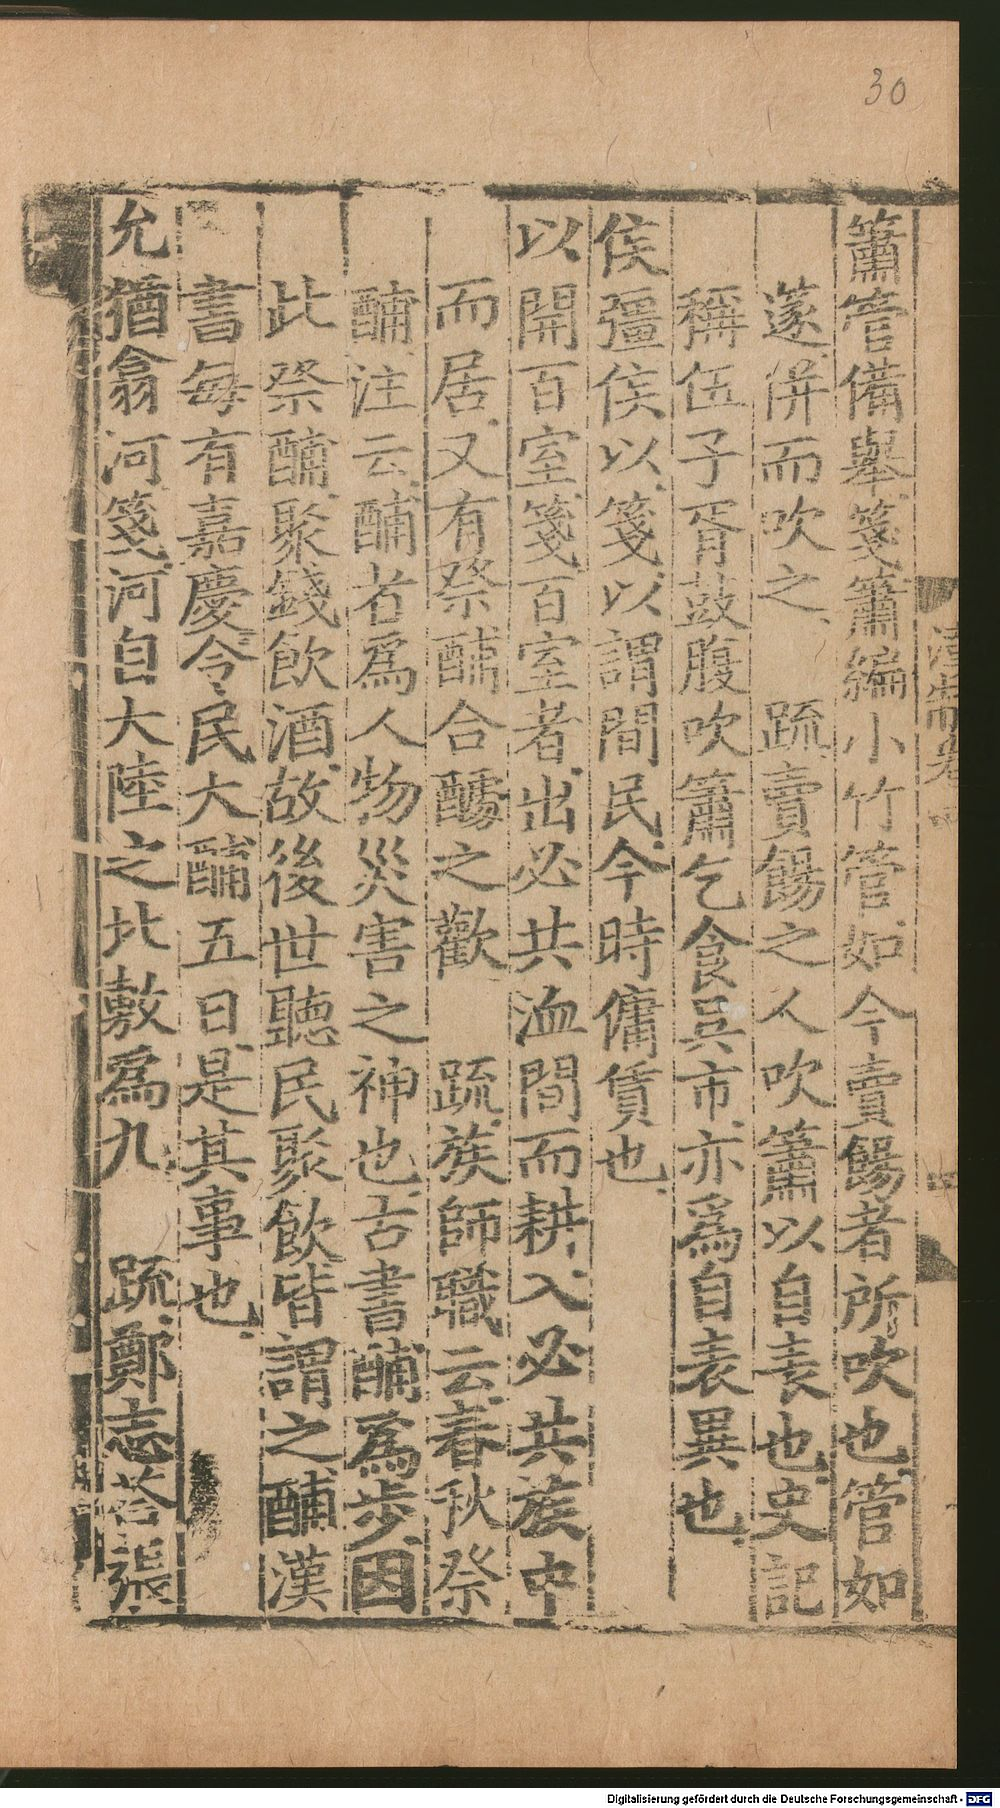 30
簫管備舉箋簫編小竹管如今賣餳者所吹也管如
篴併而吹之　疏賣餳之人吹簫以自表也史記
稱伍子胥鼓腹吹簫乞食吳市亦為自表異也
侯彊侯以箋以謂閒民今時傭賃也
以開百室箋百室者出必共洫間而耕入必共族中
而居又有祭酺合醵之歡　疏族師職云春秋祭
酺注云酺者爲人物災害之神也古書酺爲步因
此祭酺聚錢飲酒故後世聽民聚飲皆謂之酺漢
書每有嘉慶令民大酺五日是其事也
允猶翕河箋河自大陸之北敷爲九　疏鄭志荅張
Digitalisierung gefördert durch die Deutsche Forschungsgemeinschaft - DFG